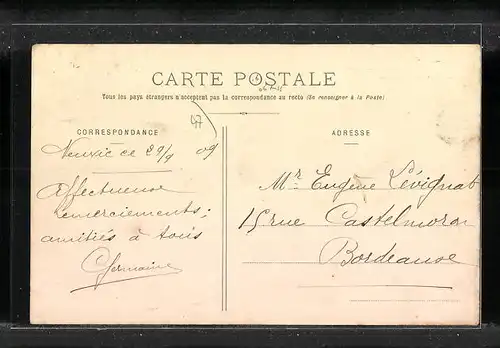 CARTE POSTALE
Tous les pays étrangers n'acceptent pas la correspondance au recto (Se renseigner à la Poste)
47
CORRESPONDANCE
Neuvic ce 29/9 09
Affectueuse
remerciements;
amitiés à tous
Germaine
ADRESSE
Mr Eugène Lévignat
15 rue Castelmoron
Bordeaux